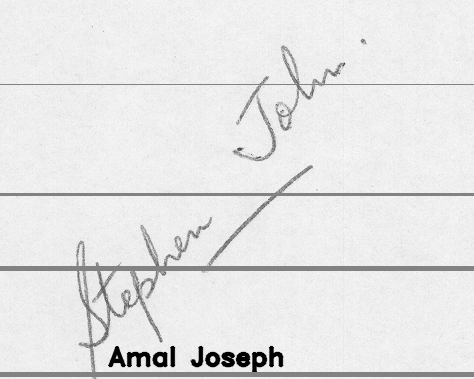 Stephen John.
Amal Joseph